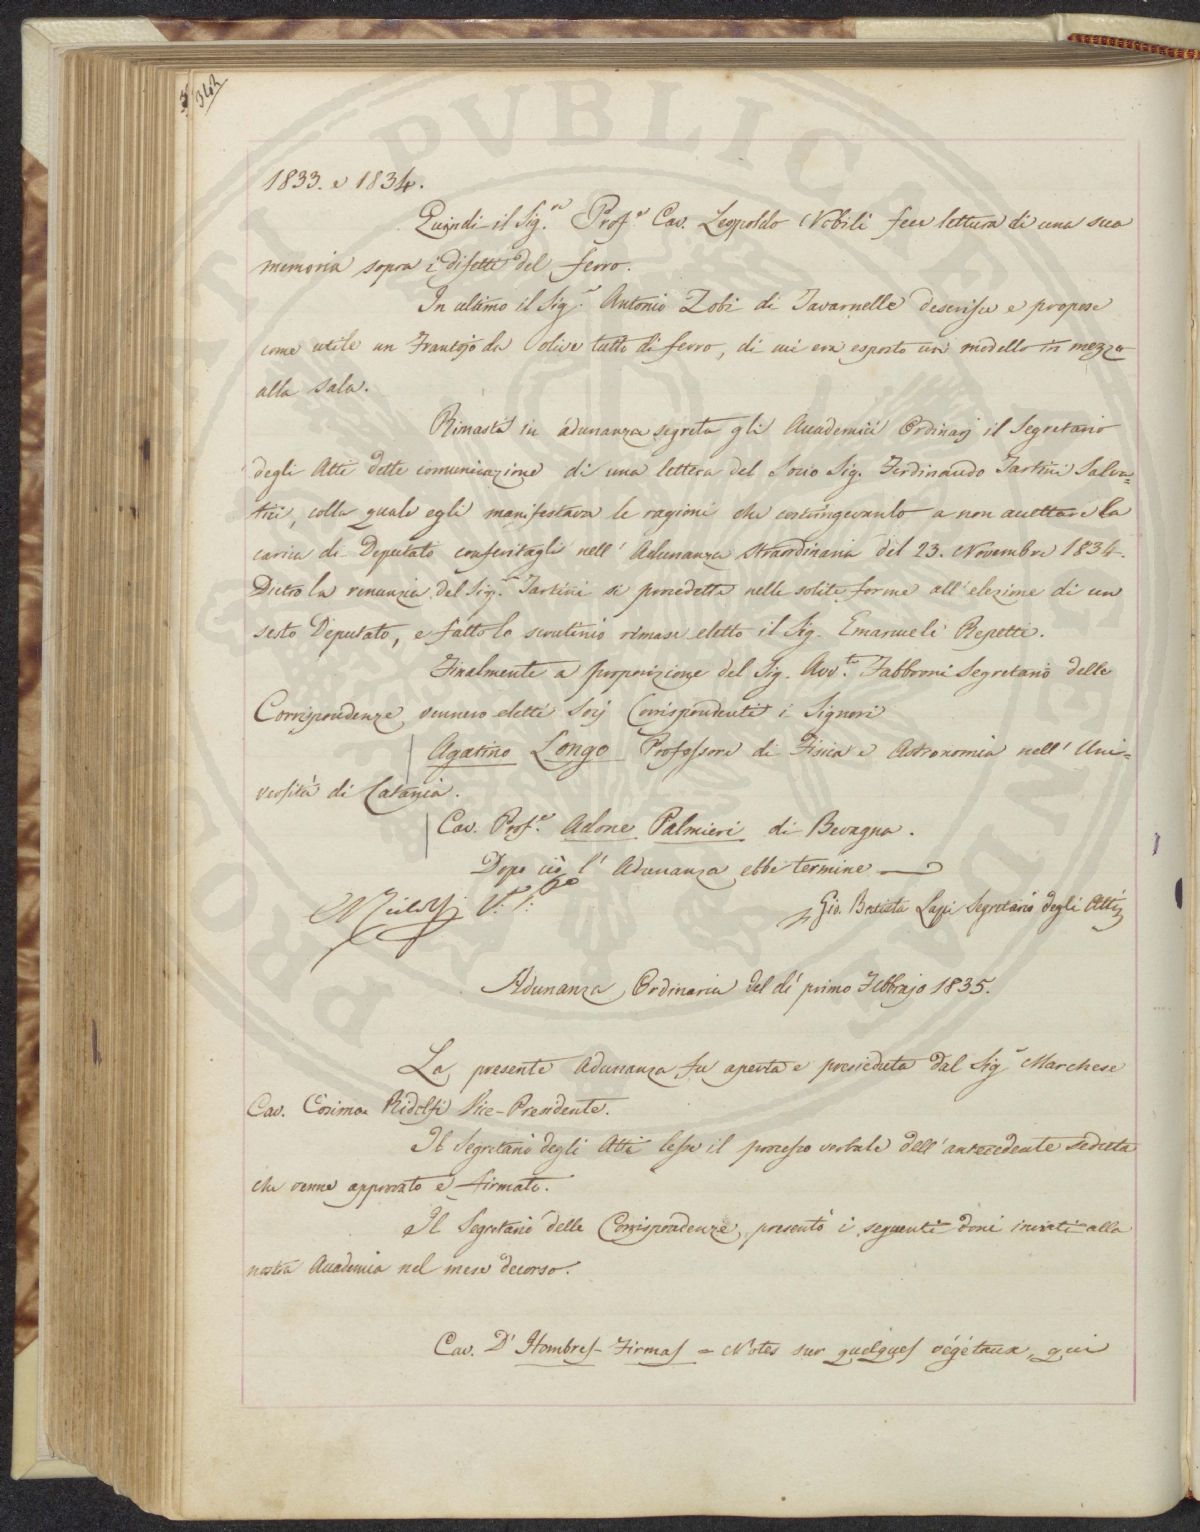 342
1833. e 1834.
Quindi il Sig.re Prof.e Cav. Leopoldo Nobili fece lettura di una sua
memoria sopra i difetti del ferro.
In ultimo il Sig.r Antonio Zobi di Tavarnelle descrisse e propose
come utile un Frantojo da olive tutto di ferro, di cui era esposto un modello in mezzo
alla sala.
Rimasti in adunanza segreta gli Accademici Ordinarj il Segretario
degli Atti dette comunicazione di una lettera del Socio Sig. Ferdinando Tartini Salva=
tici, colla quale egli manifestava le ragioni che costringevanlo a non accettare la
carica di Deputato conferitagli nell' Adunanza straordinaria del 23. Novembre 1834.
Dietro la renunzia del Sig.r Tartini si procedette nelle solite forme all' elezione di un
sesto Deputato, e fatto lo scrutinio rimase eletto il Sig. Emanuele Repetti.
Finalmente a proposizione del Sig. Avv.to Fabbroni Segretario delle
Corrispondenze, vennero eletti Socj Corrispondenti i Signori
Agatino Longo Professore di Fisica e Astronomia nell' Uni=
versità di Catania.
Cav. Prof.e Adone Palmieri di Bevagna.
Dopo ciò l' Adunanza ebbe termine
Ridolfi V. P.
Gio. Batista Lapi Segretario degli Atti
Adunanza Ordinaria del dì primo Febbrajo 1835.
La presente Adunanza fu aperta e presieduta dal Sig.r Marchese
Cav. Cosimo Ridolfi Vice-Presidente.
Il Segretario degli Atti lesse il processo verbale dell' antecedente seduta
che venne approvato e firmato.
Il Segretario delle Corrispondenze, presentò i seguenti doni inviati alla
nostra Accademia nel mese decorso.
Cav. D' Hombres-Firmas = Notes sur quelques végétaux, qui